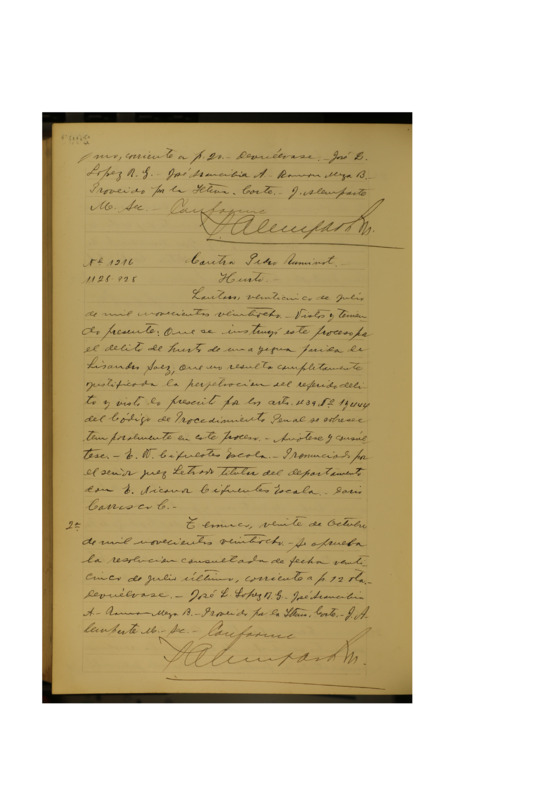 mo, corriente a p. 2v. - Devuélvase. - José L.
Lopez R. G. - José Arancibia A. - Ramon Meza B. -
Proveido por la Iltma. Corte. - J. A. Lemparte
M. Sec. - Conforme
Nº 1216 Contra Pedro
1128-928 Hurto. -
Lautaro, veinticinco de Julio
de mil novecientos veintiocho. - Vistos y tenien
do presente: Que se instruyó este proceso por
el delito de hurto de una yegua parida de
Lisandro Saez, que no resulta completamente
justificada la perpetracion del referido deli-
to y visto lo prescrito por los arts.
del Código de Procedimiento Penal se sobresee
temporalmente en este proceso. - Anótese y consúl
tese. - E. N. Cifuentes Escala. - Pronunciado por
el señor juez Letrado titular del departamento
don E. Nicanor Cifuentes Escala. - Luis
Carrasco C. -
2a Temuco, veinte de Octubre
de mil novecientos veintiocho. - Se aprueba
la resolucion consultada de fecha veinti
cinco de julio último, corriente a p. 12 vta.
Devuélvase. - José L. Lopez R. G. - José Arancibia
A. - Ramon Meza B. - Proveido por la Iltma. Corte. - J. A.
Lemparte M. - Sec. - Conforme